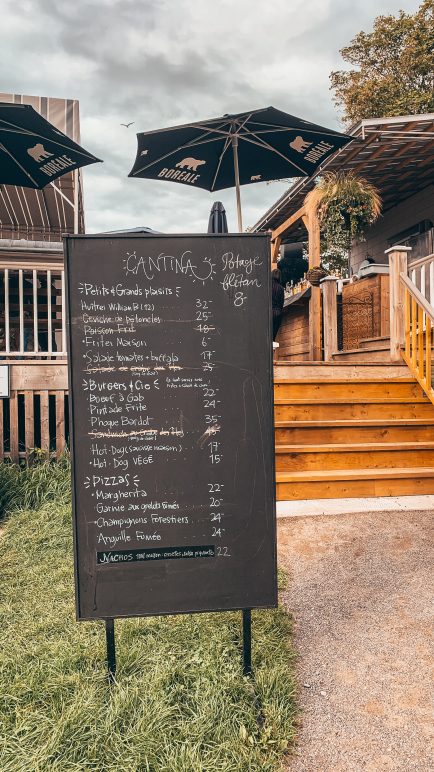 BOREALE
BOREALE
BOREALE
CANTINA
Potage
flétan
8-
Petits & Grands plaisirs
Huitres William B (12) 32-
Ceviche de pétoncles 25-
Poisson Frit 18-
• Frites Maison 6-
• Salade tomates + burrata 17-
Salade de crabe des îles 25-
Burgers & Cie
Boeuf à Gab 22-
Pintade Frite 24-
Phoque Bardot 35-
Sandwich au Crabe des îles
Hot-Dog (Saucisse maison) 17-
• Hot-Dog VÉGÉ 15-
Pizzas
• Margherita 22-
Garnie aux grelots fumés 20-
• Champignons Forestiers 24-
Anguille Fumée 24-
NACHOS 22